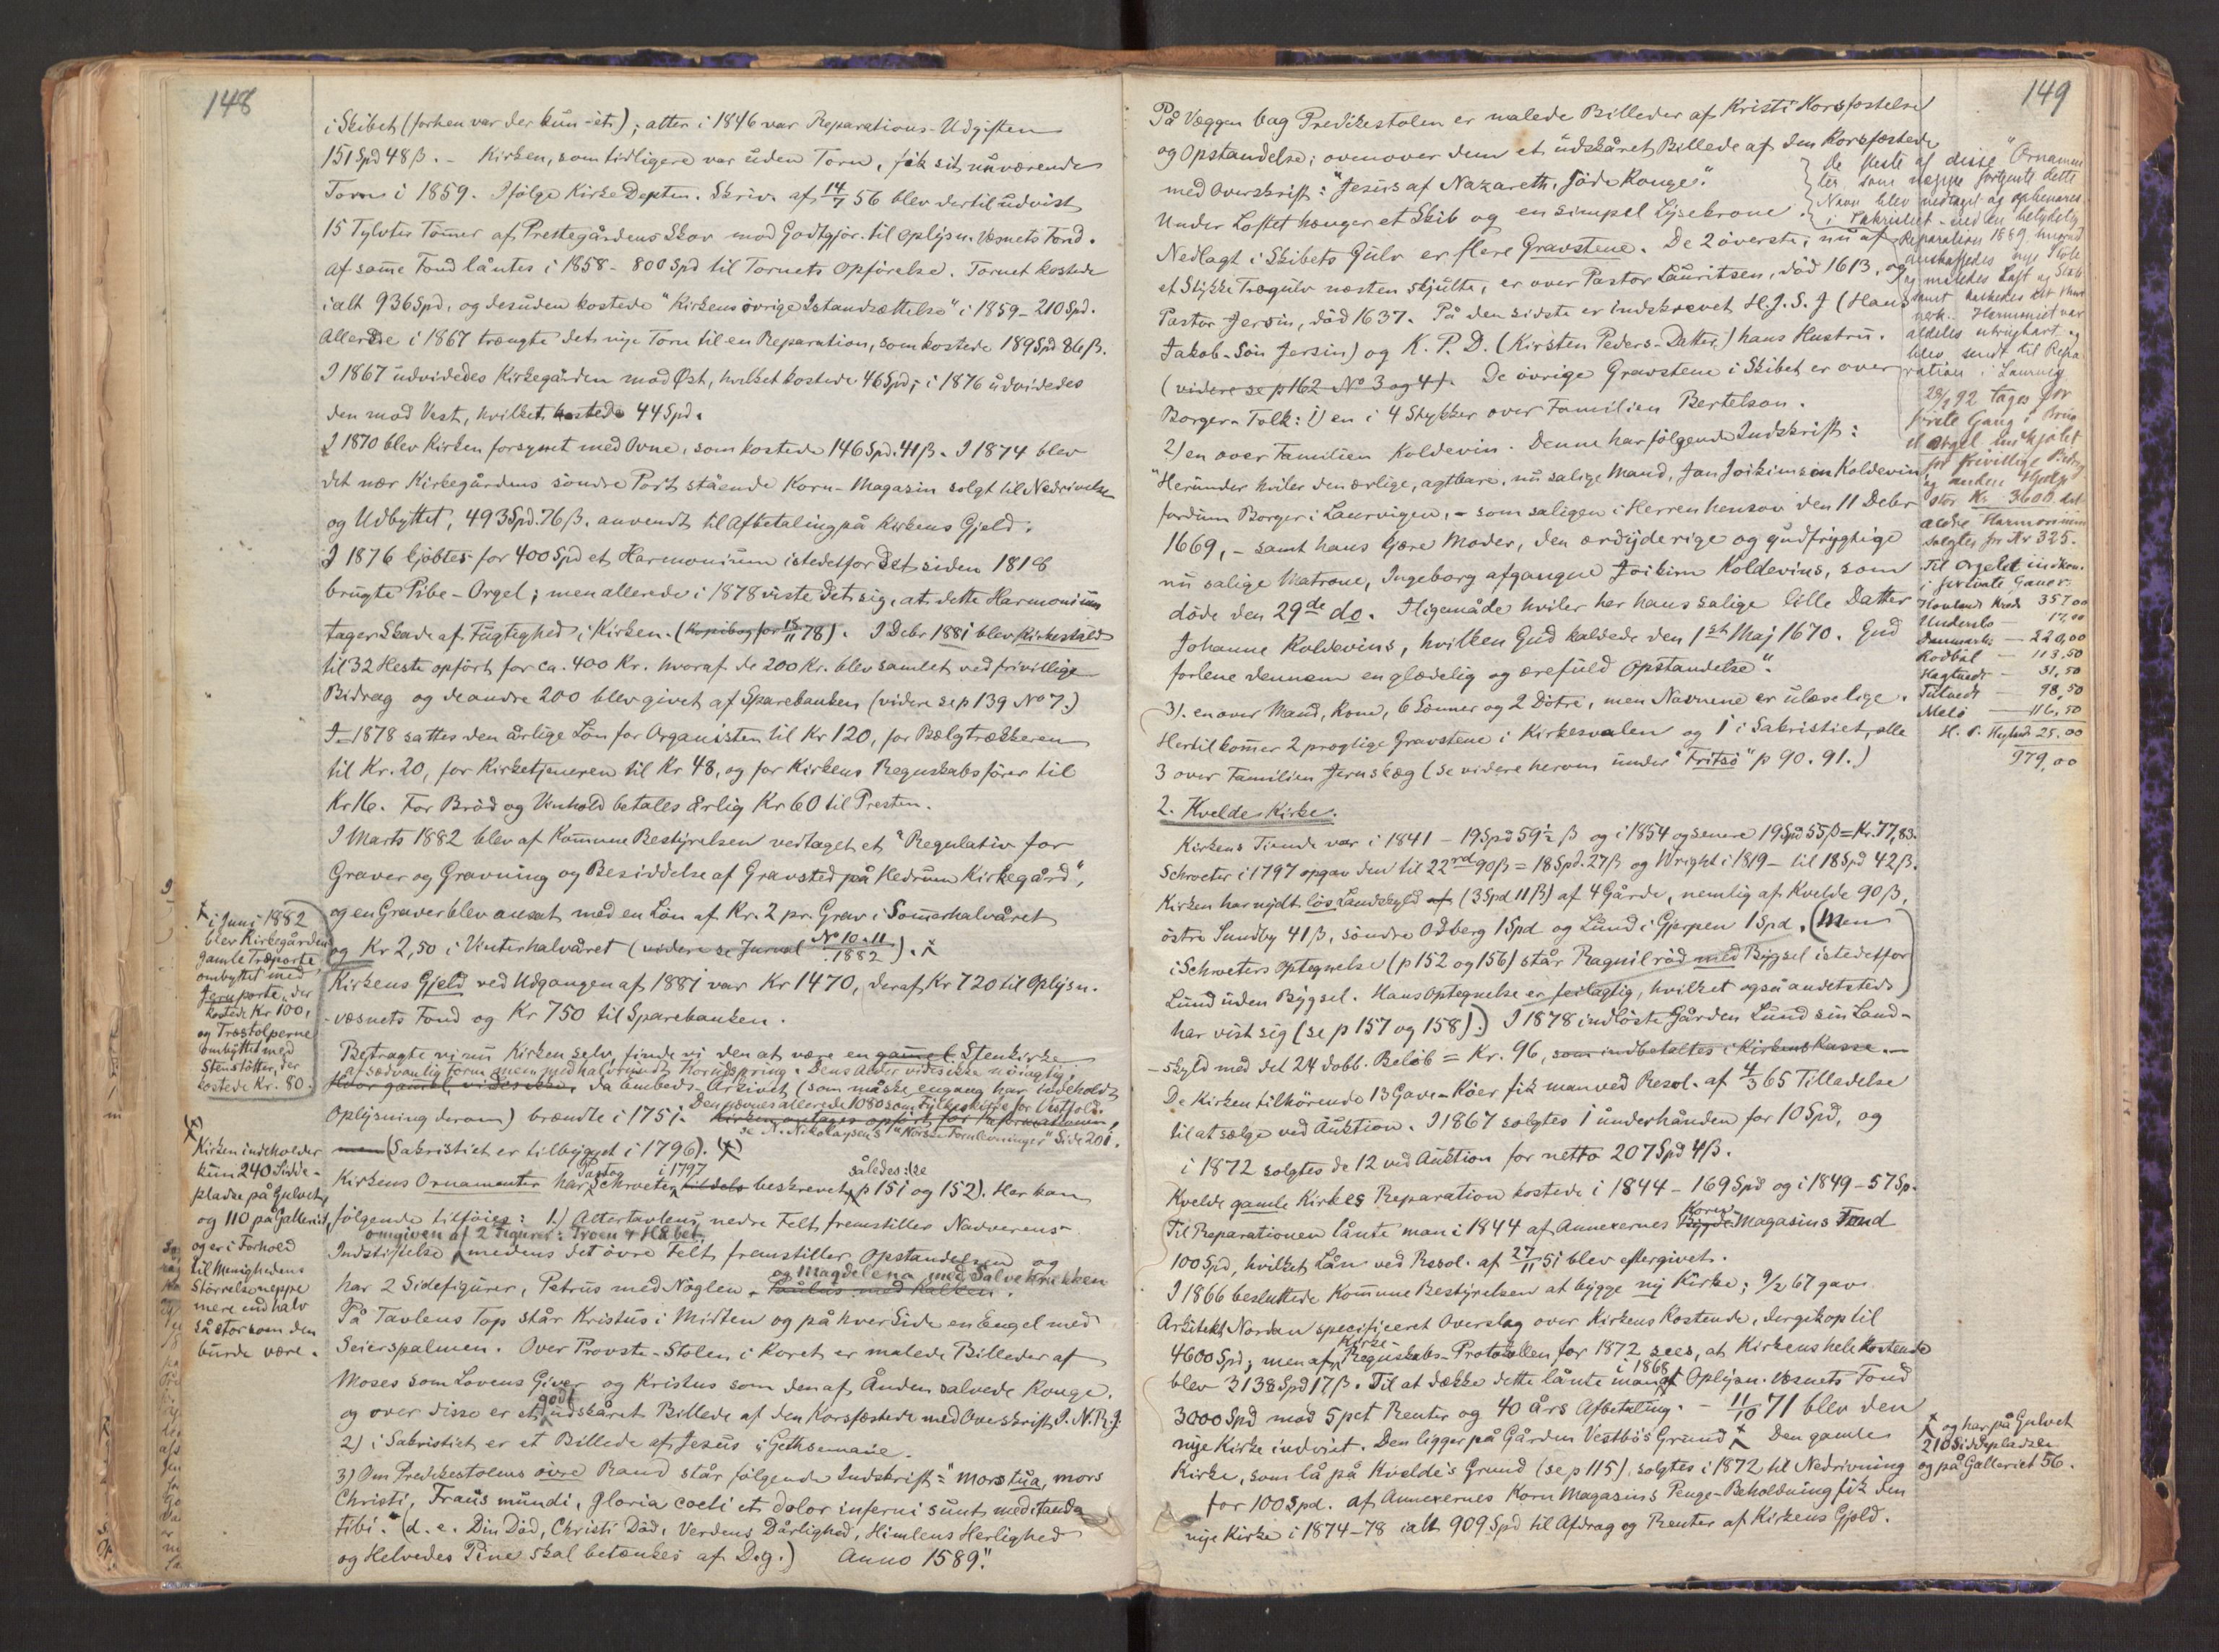 148
i Skibet (forhen var der kun ét); atter i 1846 var Reparations-Udgiften
151 Spd 48 ß. - Kirken, som tidligere var uden Torn, fik sit nuværende
Torn i 1859. Ifølge Kirke Depten. Skriv. af 14/7 56 blev dertil udvist
15 Tylvter Tømer af Prestegårdens Skov mod Godtgjør. til Oplysn. Væsnets Fond.
Af same Fond låntes i 1858 - 800 Spd til Tornets Opførelse. Tornet kostede
ialt 936 Spd, og desuden kostede "Kirkens øvrige Istandsættelse" i 1859 - 210 Spd.
Allerede i 1867 trængte det nye Torn til en Reparation, som kostede 189 Spd 86 ß.
I 1867 udvidedes Kirkegården mod Øst, hvilket kostede 46 Spd; i 1876 udvidedes
den mod Vest, hvilket kostede 44 Spd.
I 1870 blev Kirken forsynet med Ovne, som kostede 146 Spd. 41 ß. I 1874 blev
det nær Kirkegårdens søndre Port stående Korn-Magasin solgt til Nedrivelse
og Udbyttet, 493 Spd. 76 ß. anvendt til Afbetaling på Kirkens Gjeld.
I 1876 kjøbtes for 400 Spd et Harmonium istedetfor Det siden 1818
brugte Pibe-Orgel; men allerede i 1878 viste det sig, at dette Harmonium
tager Skade af Fugtighed i Kirken. (Kopibog for 15/11 78). I Debr 1881 blev Kirkestald
til 32 Heste opført for ca. 400 Kr. hvoraf de 200 Kr. blev samlet ved frivillige
Bidrag og de andre 200 blev givet af Sparebanken (videre se p 139 No 7.)
I 1878 sattes den årlige Løn for Organisten til Kr 120, for Bælgtrækkeren
til Kr. 20, for Kirketjeneren til Kr 48, og for Kirkens Regnskabsfører til
Kr 16. For Brød og Vinhold betales årlig Kr 60 til Presten.
I Marts 1882 blev af Komune Bestyrelsen vedtaget et "Regulativ for
Graver og Gravning og Besiddelse af Gravsted på Hedrum Kirkegård",
og en Graver blev ansat med en Løn af Kr. 2 pr. Grav i Somerhalvåret
og Kr 2,50 i Vinterhalvåret (videre se Jurnal No 10 - 11 / 1882). X
Kirkens Gjeld ved Udgangen af 1881 var Kr 1470, deraf Kr 720 til Oplysn.
-væsnets Fond og Kr 750 til Sparebanken.
Betragte vi nu Kirken selv, finde vi den at være en gamel Stenkirke
af sædvanlig Form men med halvrundt Korudspring. Dens Alder vides ikke nøiagtig,
Hvor gamel, vides ikke, da Embeds-Arkivet (som måske engang har indeholdt
Oplysning derom) brændte i 1751. Den nævnes allerede 1080 som Fylkeskirke for Vestfold.
Kirken antages opført før Reformationen,
se N. Nikolaysens "Norske Fornlevninger" Side 201.
men (Sakristiet er tilbygget i 1796). (X)
Kirkens Ornamenter har Pastor Schroeter i 1797 tildels beskrevet således: (se p 151 og 152). Her kan
følgende tilføies: 1.) Altertavlens nedre Felt fremstiller Nadverens
omgiven af 2 Figurer: Troen & Håbet,
Indstiftelse medens det øvre Felt fremstiller Opstandelsen og
har 2 Sidefigurer, Petrus med Nøglen og Magdelena med Salvekrukken. Paulus med Kalken.
På Tavlens Top står Kristus i Midten og på hver Side en Engel med
Seierspalmen. Over Provste-Stolen i Koret er malede Billeder af
Moses som Lovens Giver og Kristus som den af Ånden salvede Konge.
og over disse er et godt udskåret Billede af den Korsfæstede med Overskrift J. N. R. J.
2) i Sakristiet er et Billede af Jesus i Gethsemane.
3) Om Predikestolens øvre Rand står følgende Indskrift: "Mors tua, mors
Christi, Fraus mundi, Gloria coeli et dolor inferni sunt meditanda
tibi." (d. e. Din Død, Christi Død, Verdens Dårlighed, Himlens Herlighed
og Helvedes Pine skal betænkes af Dig.) Anno 1589."
X i Juni 1882
blev Kirkegårdens
gamle Træporte
ombyttet med
Jernporte, der
kostede Kr 100,
og Træstolperne
ombyttet med
Stenstøtter, der
kostede Kr. 80.
(X)
Kirken indeholder
kun 240 Sidde-
pladse på Gulvet
og 110 på Galleriet,
og er i Forhold
til Menighedens
Størrelse neppe
mere end halv
så stor som den
burde være.
149
På Væggen bag Predikestolen er malede Billeder af Kristi Korsfæstelse
og Opstandelse; ovenover dem et udskåret Billede af den Korsfæstede
med Overskrift: "Jesus af Nazareth, Jøde Konge".
Under Loftet hænger et Skib og en simpel Lysekrone.
Nedlagt i Skibets Gulv er flere Gravstene. De 2 øverste, nu af
et Stykke Trægulv næsten skjulte, er over Pastor Lauritsen, død 1613, og
Pastor Jersin, død 1637. På den sidste er indskrevet H. J. S. J (Hans
Jakob-Søn Jersin) og K. P. D. (Kirsten Peders-Datter) hans Hustru.
(videre se p 162 No 3 og 4). De øvrige Gravstene i Skibet er over
Borger-Folk: 1) en i 4 Stykker over Familien Bertelson.
2) en over Familien Koldevin. Denne har følgende Indskrift:
"Herunder hviler den ærlige, agtbare, nu salige Mand, Jan Joikimsøn Koldevin
fordum Borger i Laurvigen, - som saligen i Herren hensov den 11 Debr
1669, - samt hans kjære Moder, den ærdyderige og gudfrygtige
nu salige Matrone, Ingeborg afgangne Joikim Koldevins, som
døde den 29de do. Iligemåde hviler her hans salige lille Datter
Johanne Koldevins, hvilken Gud kaldede den 1ste Maj 1670. Gud
forlene dennem en glædelig og ærefuld Opstandelse".
3). en over Mand, Kone, 6 Sønner og 2 Døtre, men Navnene er ulæselige.
Hertil komer 2 prægtige Gravstene i Kirkesvalen og 1 i Sakristiet, alle
3 over Familien Jernskæg (se videre herom under "Fritsø" p 90. 91.)
2. Kvelde Kirke.
Kirkens Tiende var i 1841 - 19 Spd 59½ ß og i 1854 og senere 19 Spd 55 ß = Kr. 77,83.
Schroeter i 1797 opgav den til 22 rd 90 ß = 18 Spd. 27 ß og Wright i 1819 - til 18 Spd 42 ß.
Kirken har nydt løs Landskyld af (3 Spd 11 ß) af 4 Gårde, nemlig af Kvelde 90 ß,
østre Sundby 41 ß, søndre Odberg 1 Spd og Lund i Gjerpen 1 Spd. (Men
i Schroeters Optegnelse (p 152 og 156) står Ragnilrød med Bygsel istedetfor
Lund uden Bygsel. Hans Optegnelse er feilagtig, hvilket også andetsteds
har vist sig (se p 157 og 158).) I 1878 indløste Gården Lund sin Land-
-skyld med det 24 dobb. Beløb = Kr. 96, som indbetaltes i Kirkens Kasse.
De Kirken tilhørende 13 Gave-Køer fik man ved Resol. af 4/3 65 Tilladelse
til at sælge ved Auktion. I 1867 solgtes 1 underhånden for 10 Spd, og
i 1872 solgtes de 12 ved Auktion for netto 207 Spd 4 ß.
Kvelde gamle Kirkes Reparation kostede i 1844 - 169 Spd og i 1849 - 57 Sp.
Til Reparationen lånte man i 1844 af Annexernes Bygde Korn-Magasins Fond
100 Spd, hvilket Lån ved Resol. af 27/11 51 blev eftergivet.
I 1866 besluttede Komune Bestyrelsen at bygge ny Kirke; 9/2 67 gav
Arkitekt Nordan specificeret Overslag over Kirkens Kostende, der gik op til
4600 Spd; men af Kirke-Regnskabs-Protokollen for 1872 sees, at Kirkens hele Kostende
blev 3138 Spd 17 ß. Til at dække dette lånte man i 1868 af Oplysn. Væsnets Fond
3000 Spd mod 5 pct Renter og 40 års Afbetaling. - 11/10 71 blev den
nye Kirke indviet. Den ligger på Gården Vestbøs Grund X Den gamle
Kirke, som lå på Kvelde's Grund (se p 115), solgtes i 1872 til Nedrivning
for 100 Spd. Af Annexernes Korn Magasins Penge-Beholdning fik den
nye Kirke i 1874-78 ialt 909 Spd til Afdrag og Renter af Kirkens Gjeld.
De fleste af disse "Ornamen
ter" som neppe fortjente dette
Navn blev nedtaget og opbevares
i Sakristiet ved en betydelig
Reparation 1889, hvorved
anskaffedes nye Stole
og maledes Loft og
Harmoniet var
aldeles ubrugbart og
blev sendt til Repa-
ration i Laurvig
28/2 92 tages for
første Gang i Brug
et Orgel indkjøbt
for frivillige Bidrag
stor Kr. 3600. det
ældre Harmonium
solgtes for Kr 325.
Til Orgelet indkom
i private Gaver:
Hovland Kreds 357,00
Undersbo - 17,00
Danmarks - 220,00
Rødbøl - 113,50
Hagtvedt - 31,50
Tulvedt - 98,50
Melø - 116,50
H. P. 25,00
979,00
X og har på Gulvet
210 Siddepladse
og på Galleriet 56.